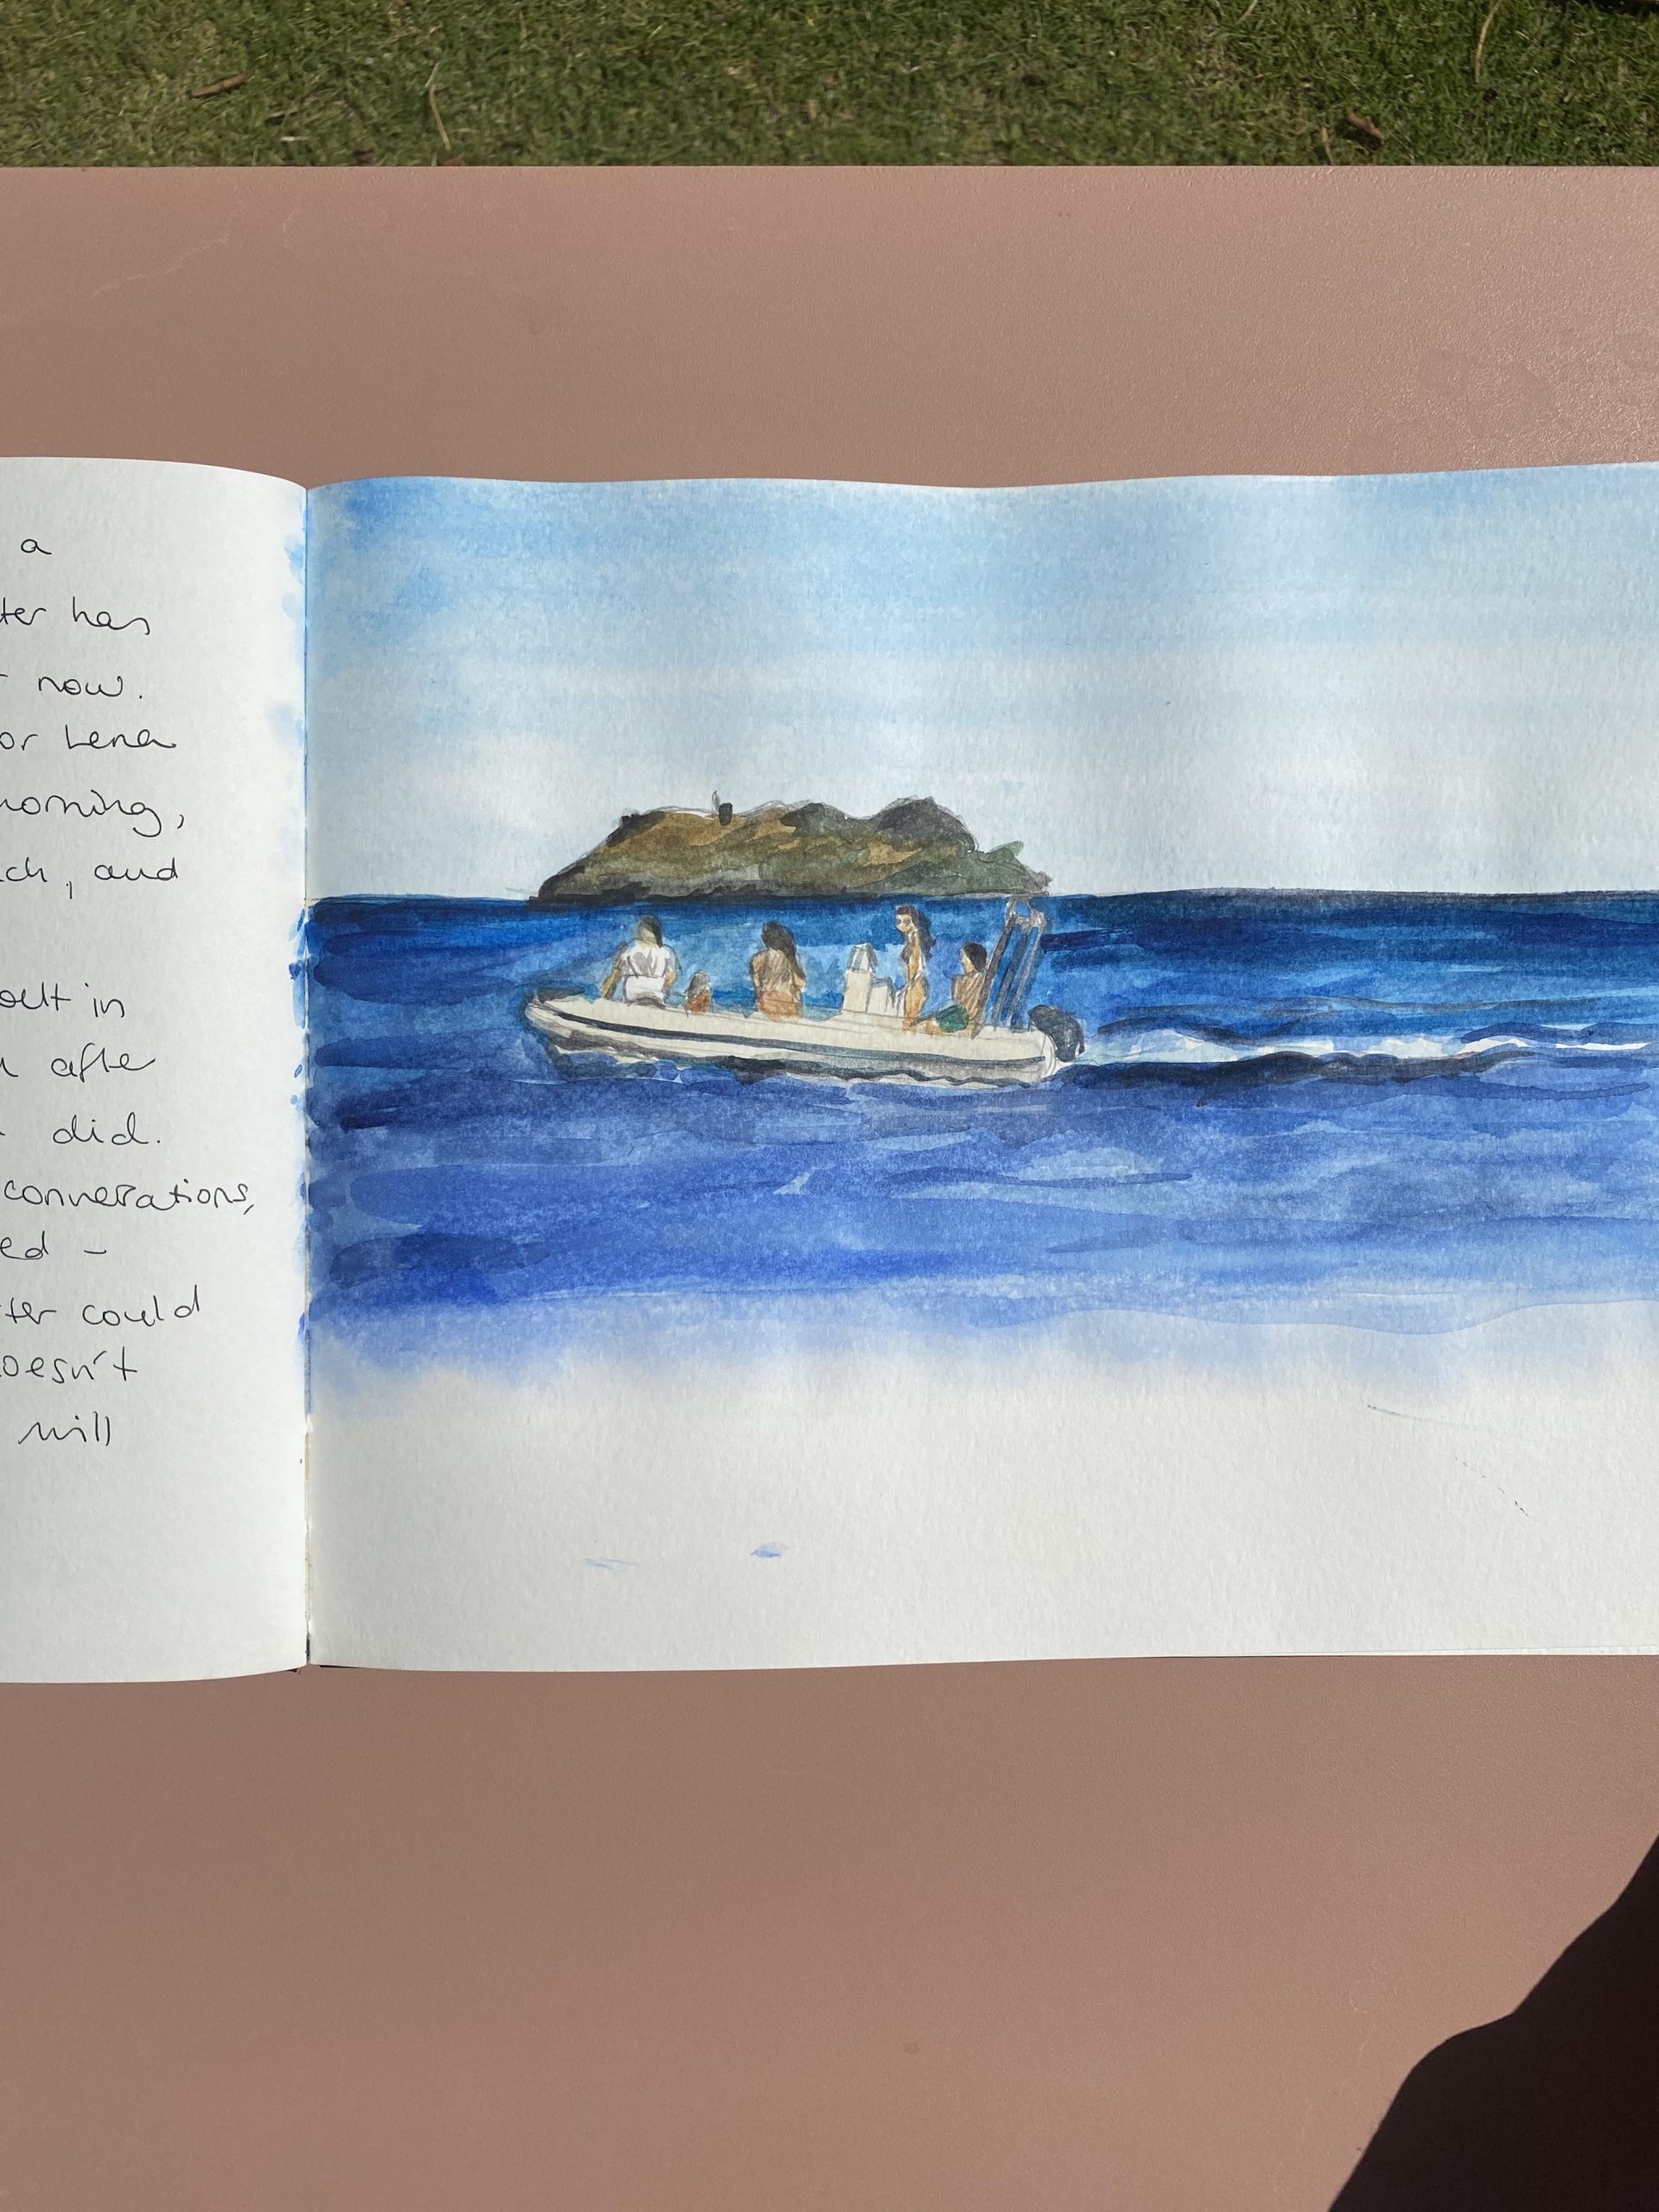 a
ter has
now.
or Lena
morning,
ch, and
oelt in
afte
did.
conversations,
ed –
ter could
oesn't
will